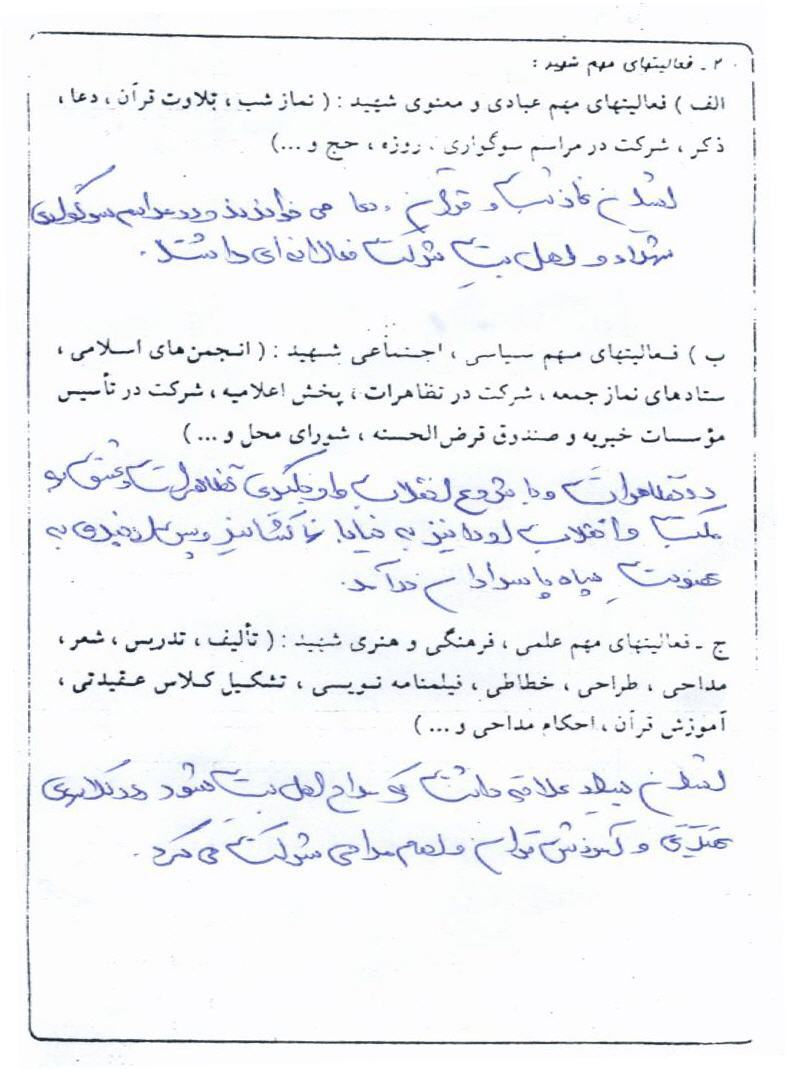 ۲ ـ فعالیتهای مهم شهید :
الف ) فعالیتهای مهم عبادی و معنوی شهید : ( نماز شب ، تلاوت قرآن ، دعا ،
ذکر ، شرکت در مراسم سوگواری ، روزه ، حج و ...)
ایشان نماز شب و قرآن و دعا می خواندند و در مراسم سوگواری
شهداء و اهل بیت شرکت فعالانه ای داشتند .
ب ) فعالیتهای مهم سیاسی ، اجتماعی شهید : ( انجمن‌های اسلامی ،
ستادهای نماز جمعه ، شرکت در تظاهرات ، پخش اعلامیه ، شرکت در تأسیس
مؤسسات خیریه و صندوق قرض‌الحسنه ، شورای محل و ... )
در تظاهرات و با شروع انقلاب و اوجگیری تظاهرات و عشق به
مکتب و انقلاب او را نیز به خیابان کشانید و پس از چندی به
عضویت سپاه پاسداران درآمد.
ج ـ فعالیتهای مهم علمی ، فرهنگی و هنری شهید : ( تألیف ، تدریس ، شعر ،
مداحی ، طراحی ، خطاطی ، فیلمنامه نویسی ، تشکیل کلاس عقیدتی ،
آموزش قرآن ، احکام مداحی و ... )
ایشان علاقه داشت که مداح اهل بیت شود در کلاسهای
عقیدتی و آموزش قرآن و مداحی شرکت می کرد .